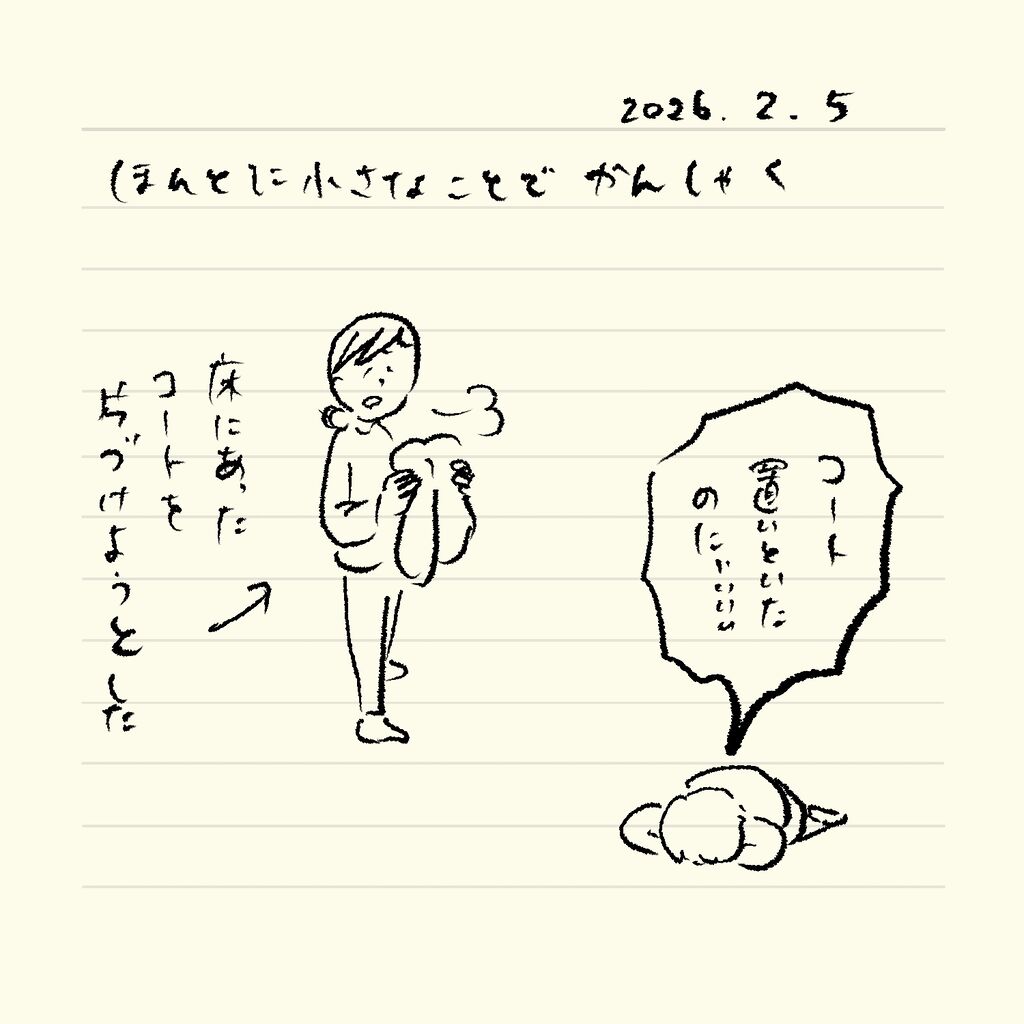 2026. 2. 5
ほんとに小さなことで かんしゃく
床にあった
コートを
片づけようとした
コート
置いといた
のにいいいい